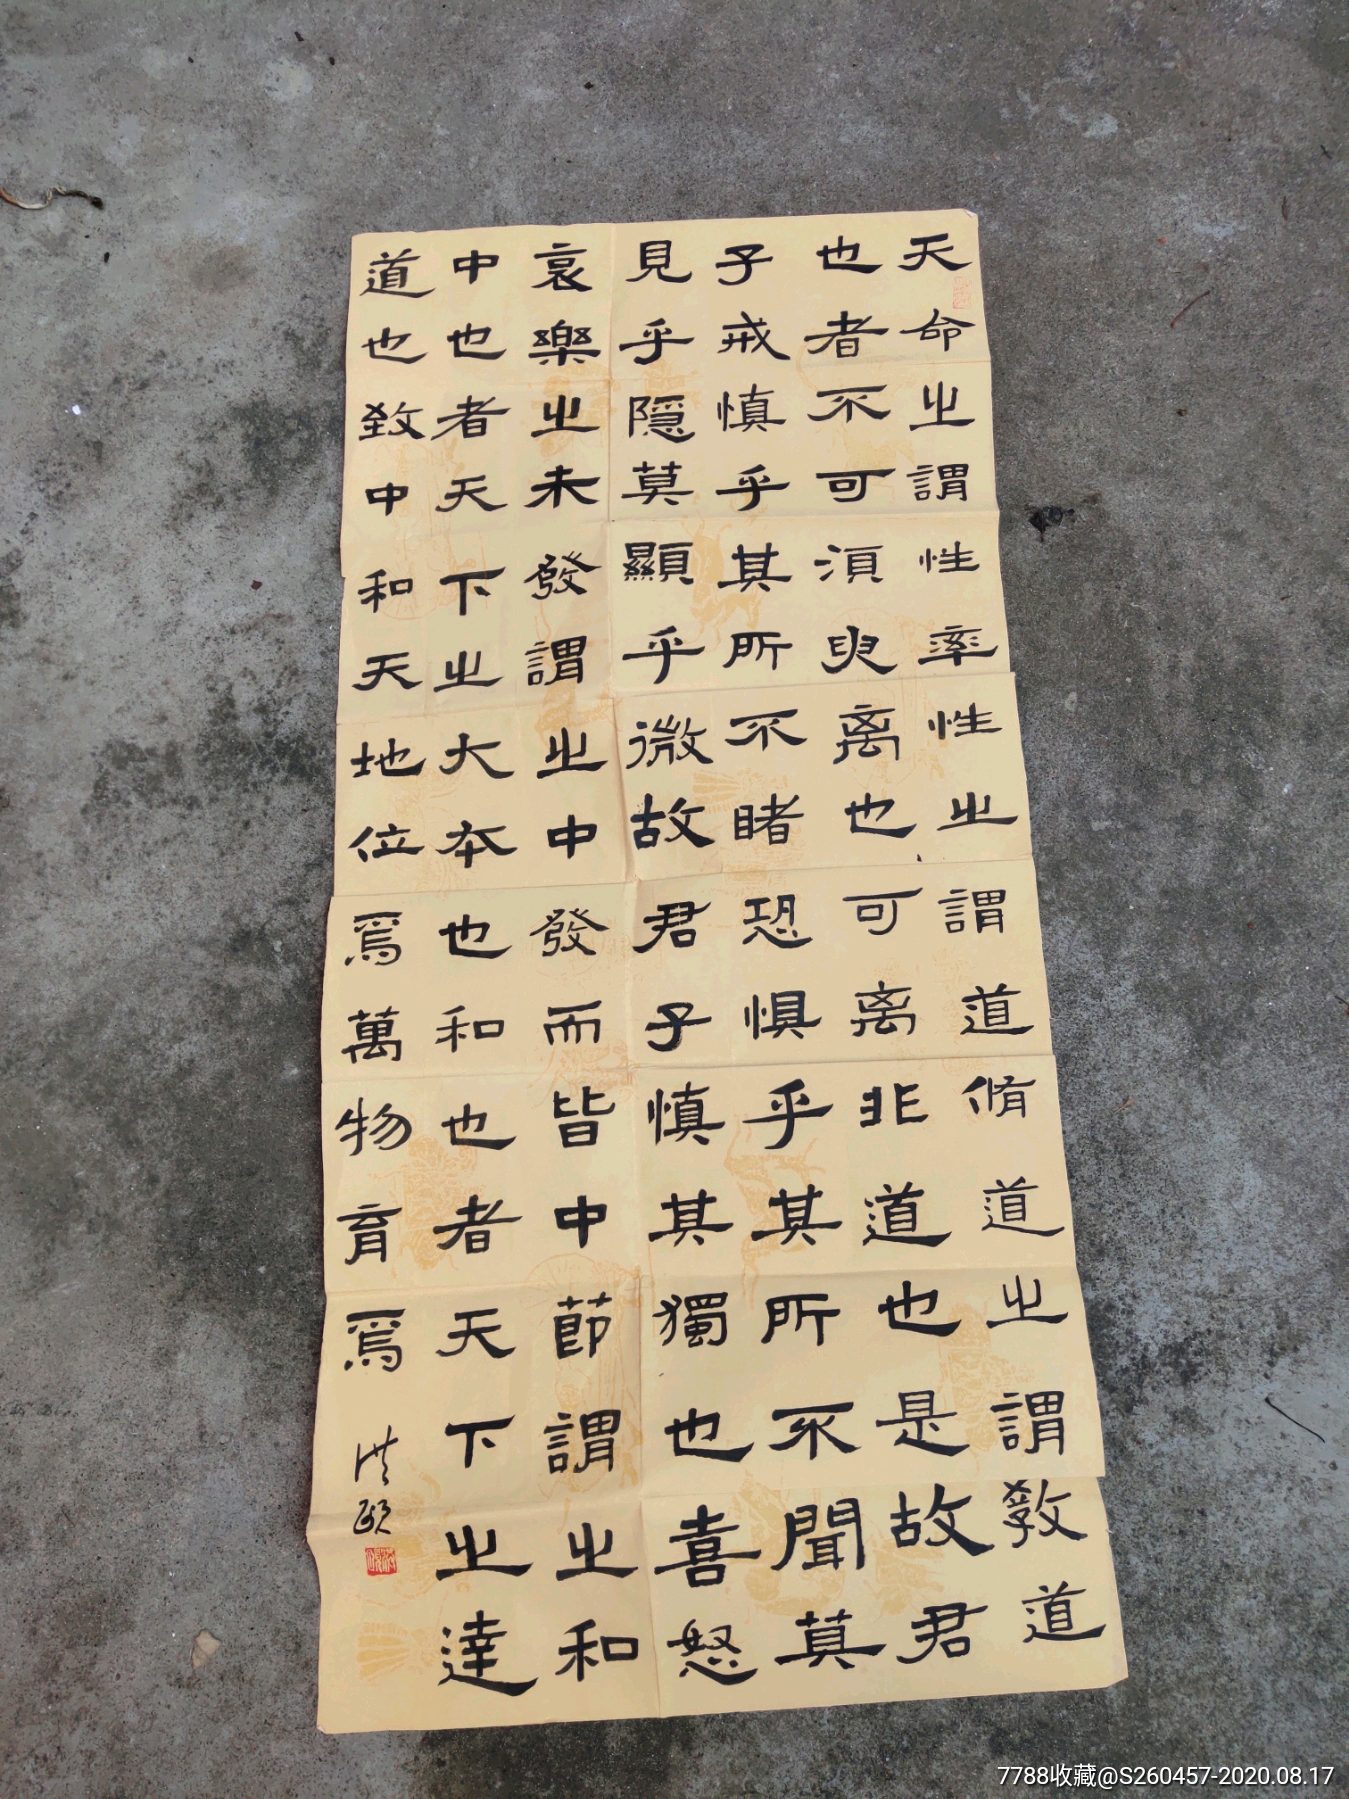 天命之謂性率性之謂道脩道之謂教道
也者不可須臾离也可离非道也是故君
子戒慎乎其所不睹恐惧乎其所不聞莫
見乎隐莫顯乎微故君子慎其獨也喜怒
哀樂之未發謂之中發而皆中節謂之和
中也者天下之大本也和也者天下之達
道也致中和天地位焉萬物育焉
7788收藏@S260457-2020.08.17